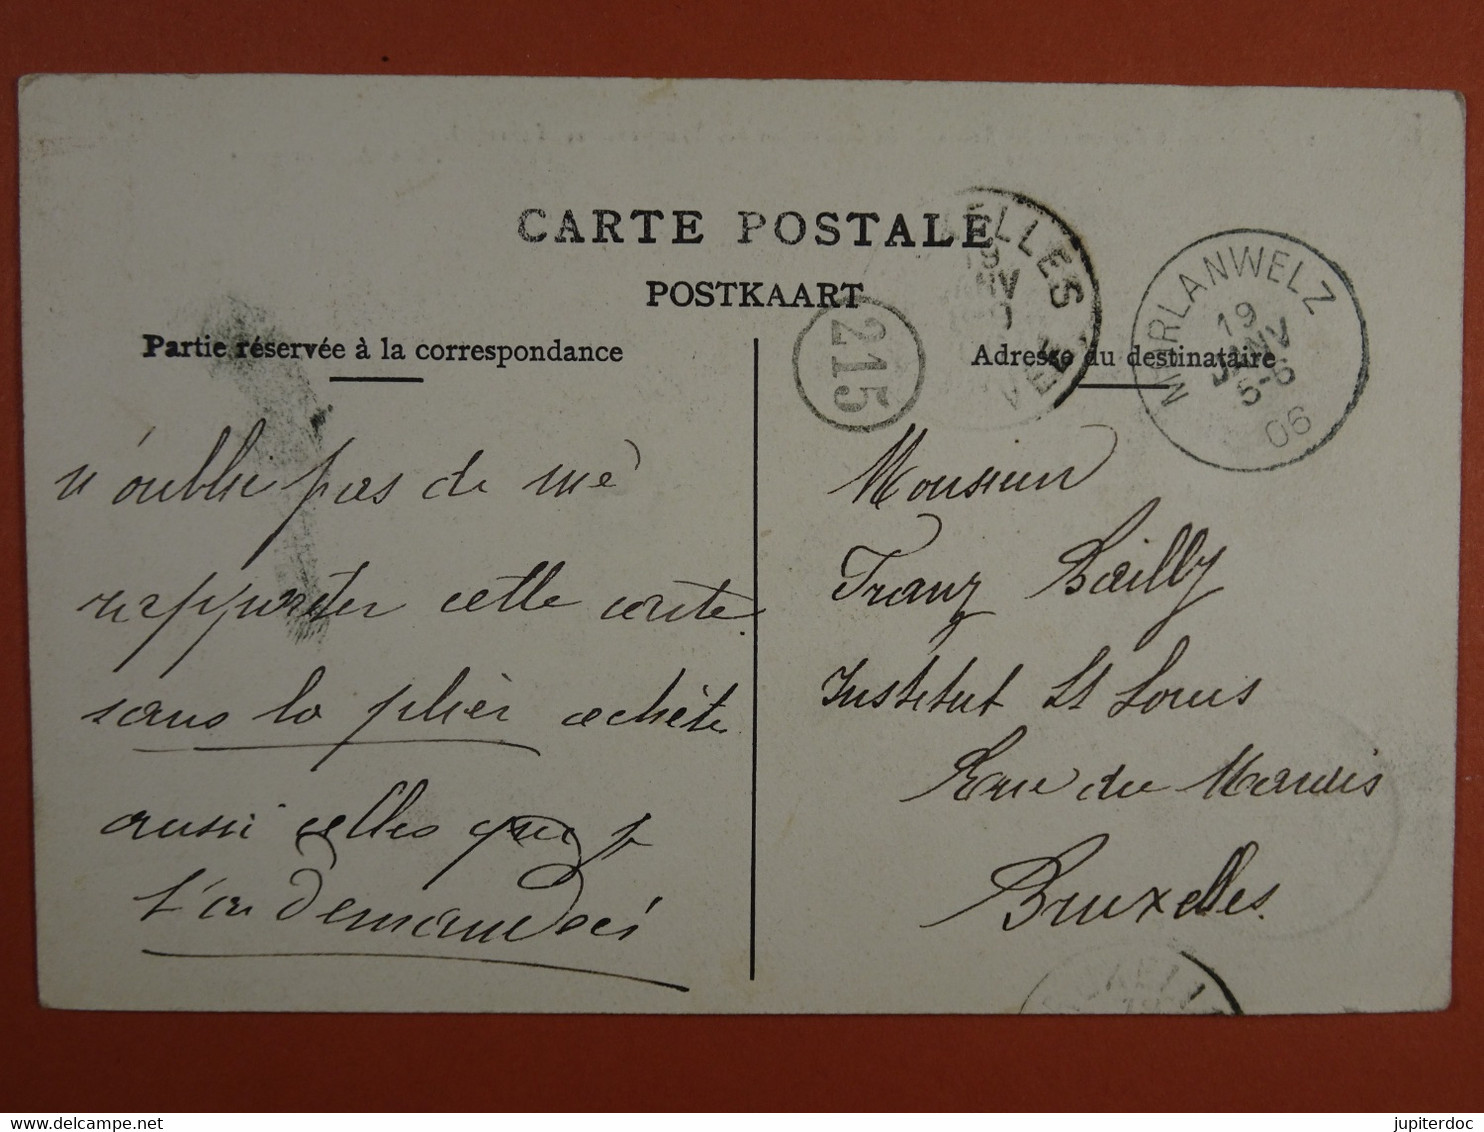 CARTE POSTALE
POSTKAART
Partie réservée à la correspondance
Adresse du destinataire
215
ELLES
19
JANV
MORLANWELZ
19
JANV
5-6
06
n'oublie pas de me
rapporter cette carte
sans la plier achète
aussi celles que je
t'ai demandées
Monsieur
Franz Bailly
Institut St Louis
Rue du Marais
Bruxelles.
jupiterdoc